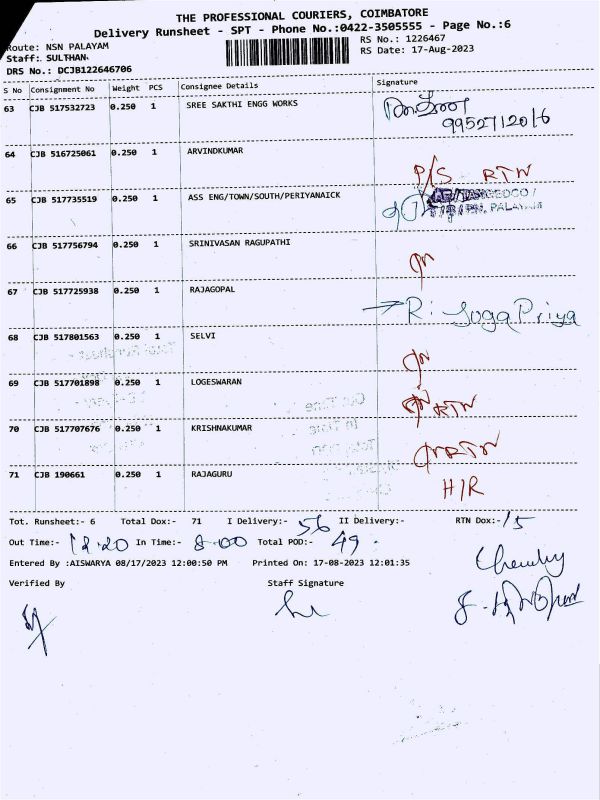 THE PROFESSIONAL COURIERS, COIMBATORE
Delivery Runsheet - SPT - Phone No.:0422-3505555 - Page No.:6
Route: NSN PALAYAM
RS No.: 1226467
Staff: SULTHAN.
RS Date: 17-Aug-2023
DRS No.: DCJB122646706
S No Consignment No Weight PCS Consignee Details Signature
63 CJB 517532723 0.250 1 SREE SAKTHI ENGG WORKS
9952712016
64 CJB 516725061 0.250 1 ARVINDKUMAR
P/S RTN
65 CJB 517735519 0.250 1 ASS ENG/TOWN/SOUTH/PERIYANAICK
66 CJB 517756794 0.250 1 SRINIVASAN RAGUPATHI
67 CJB 517725938 0.250 1 RAJAGOPAL
→ R: SugaPriya
68 CJB 517801563 0.250 1 SELVI
69 CJB 517701898 0.250 1 LOGESWARAN
RTN
70 CJB 517707676 0.250 1 KRISHNAKUMAR
RTN
71 CJB 190661 0.250 1 RAJAGURU
H/R
Tot. Runsheet:- 6 Total Dox:- 71 I Delivery:- 56 II Delivery:- RTN Dox:- 15
Out Time:- 12.20 In Time:- 8.00 Total POD:- 49.
Entered By :AISWARYA 08/17/2023 12:00:50 PM Printed On: 17-08-2023 12:01:35
Verified By Staff Signature